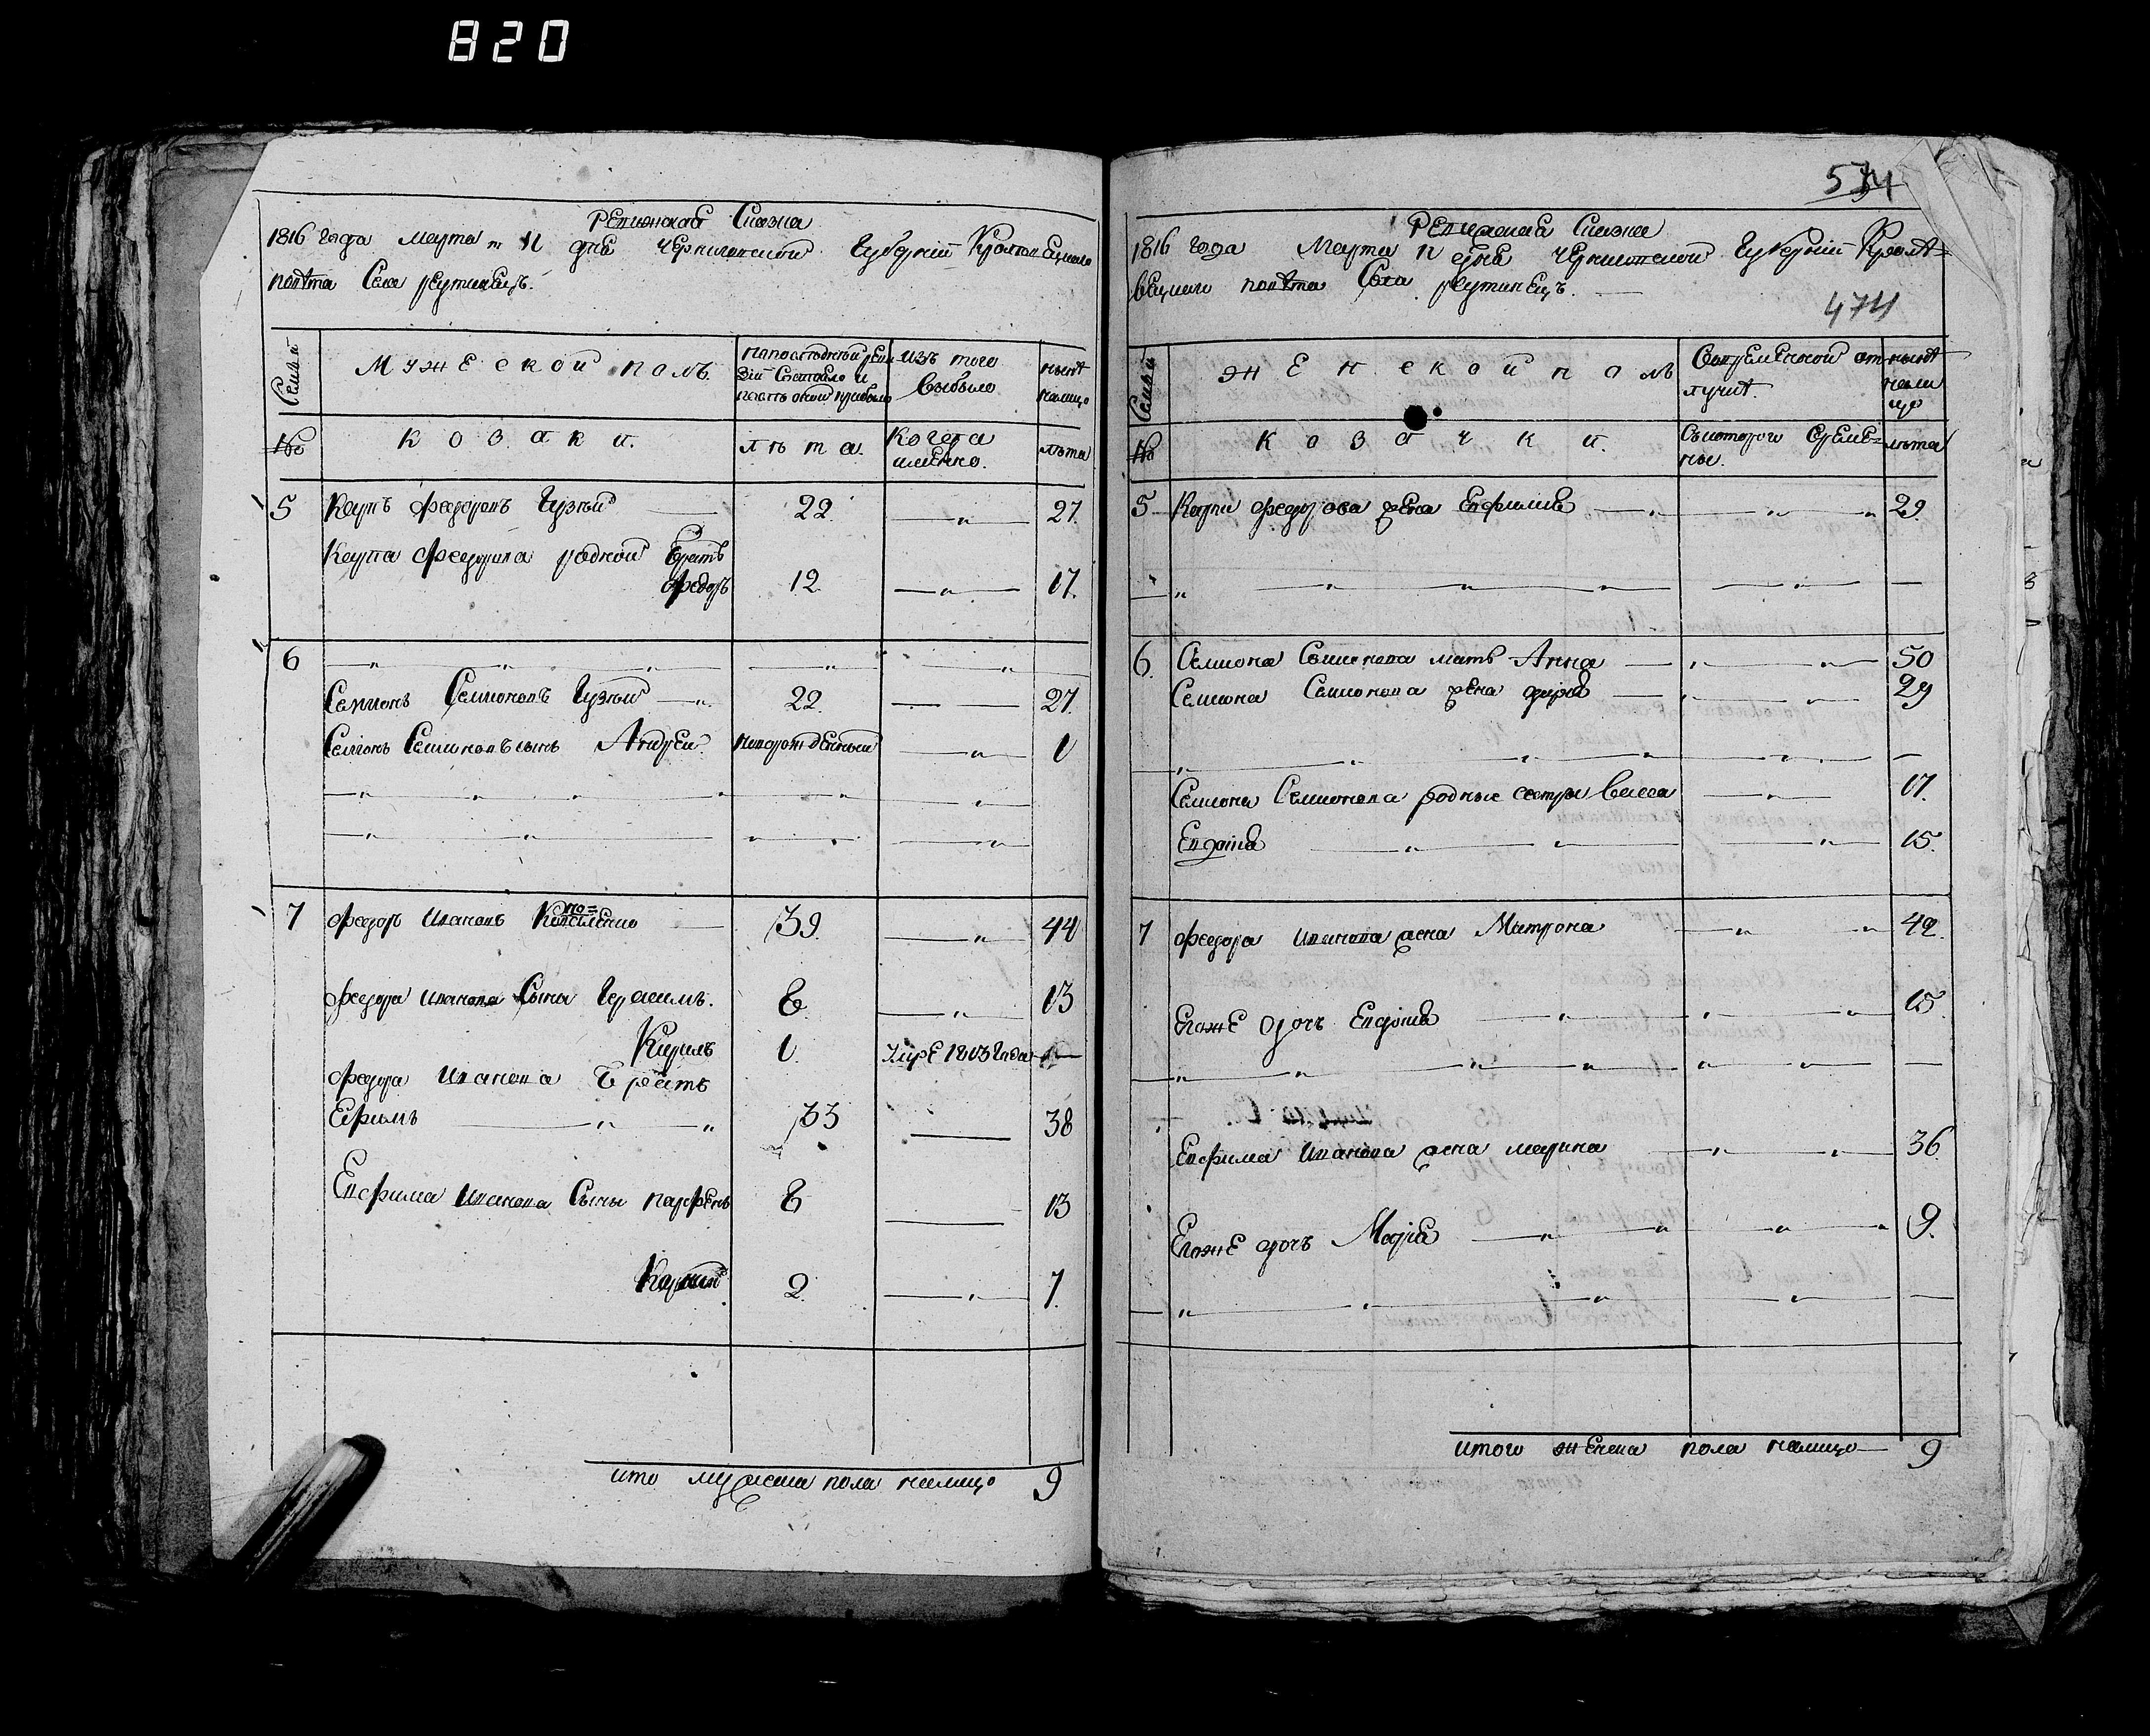 820
Ревизская Сказка
1816 года Марта дня Черниговской Губернии Кролевецкаго
повѣта Села реутинецъ.
Семьи
Мужеской полъ.
По последней реви
зии Состояло и
после оной прибыло
изъ того
выбыло
ныне
налицо
№
козаки.
лѣта.
Когда
именно.
лѣта
5 Карпъ Федоровъ Гузѣй 22. 27.
Карпа Федорова родной братъ
Федоръ 12. 17.
6
Семионъ Семионовъ Гузѣй 22. 27.
Семионъ Семионовъ сынъ Андрей новорожденный 1
7 Федоръ Ивановъ 39. 44
Федора Иванова Сыны Герасимъ. 8 13
Кирилъ 1. умре 1813 года
Федора Иванова Братъ
Ефимъ 33 38
Евфима Иванова Сыны парфенъ 8 13
2. 7.
ито мужеска пола налицо 9
534
Ревизская Сказка
1816 года Марта дня Черниговской Губернии Кроле=
вецкаго повѣта Села реутинецъ.
474
Семьи
женской полъ
Во временной от
лучке.
ныне
нали
цо
№
козачки.
Съ котораго време=
ни.
лѣта
5 Карпа Федорова жена Евфимия 29.
6. Семиона Семионова мать Анна 50
Семиона Семионова жена 29
Семиона Семионова родные сестры Васса 17.
Евдокия 15.
7 Федора Иванова жена Матрона 42.
Егоже дочь Евдокия 15.
Евфима Иванова жена марина 36.
Егоже дочь Мария 9.
итого женска пола налицо 9